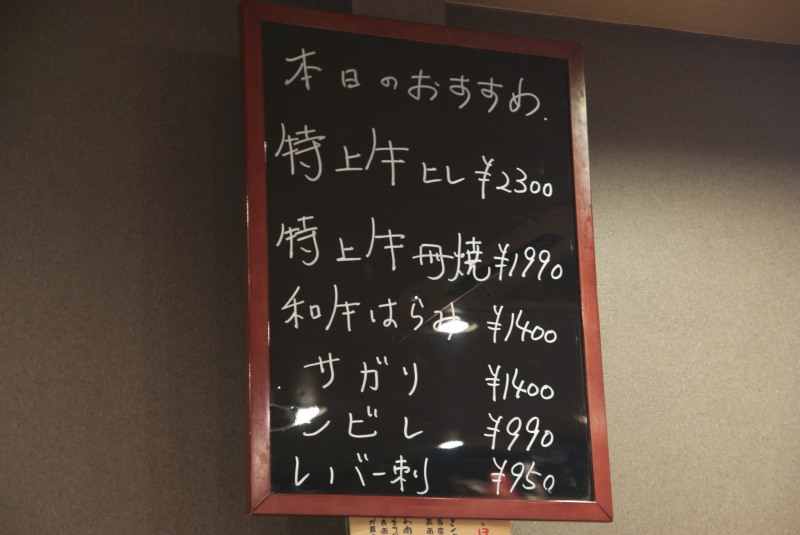 本日のおすすめ.
特上牛ヒレ ¥2300
特上牛冊焼 ¥1990
和牛はらみ ¥1400
サガリ ¥1400
ンビレ ¥990
レバー刺 ¥950